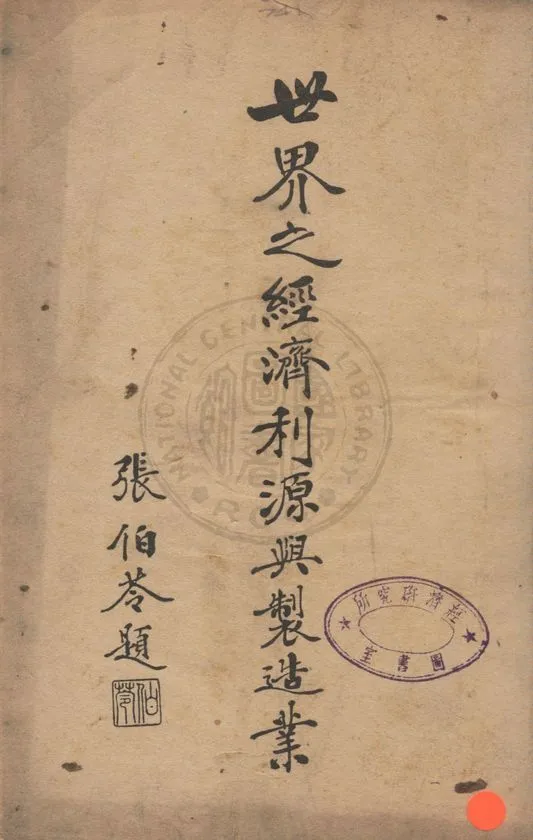 世界之經濟利源與製造業
張伯苓題
伯苓
NATIONAL CENTRAL LIBRARY
圖書室